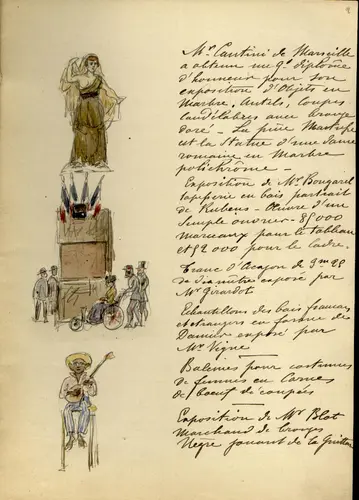 Mr Cantini de Marseille
a obtenu un gd diplôme
d'honneur pour son
exposition d'Objets en
Marbre, Autels, coupes
candélabres avec bronze
doré - La pièce
est la Statue d'une Dame
romaine en Marbre
polichrôme -
Exposition de Mr Bougarel
tapisserie en bois portrait
de Rubens - Œuvre d'un
simple ouvrier - 85000
morceaux pour le tableau
et 52 000 pour le cadre.
Tronc d'Acajou de 2m 28
de diamètre exposé par
Mr Girardot
Echantillons des bois français
et étrangers en forme de
Damier exposé par
Mr Vigne
Baleines pour costumes
de femmes en Cornes
de bœuf découpées
Exposition de Mr Blot
Marchand de bronzes
Nègre jouant de la Guitare